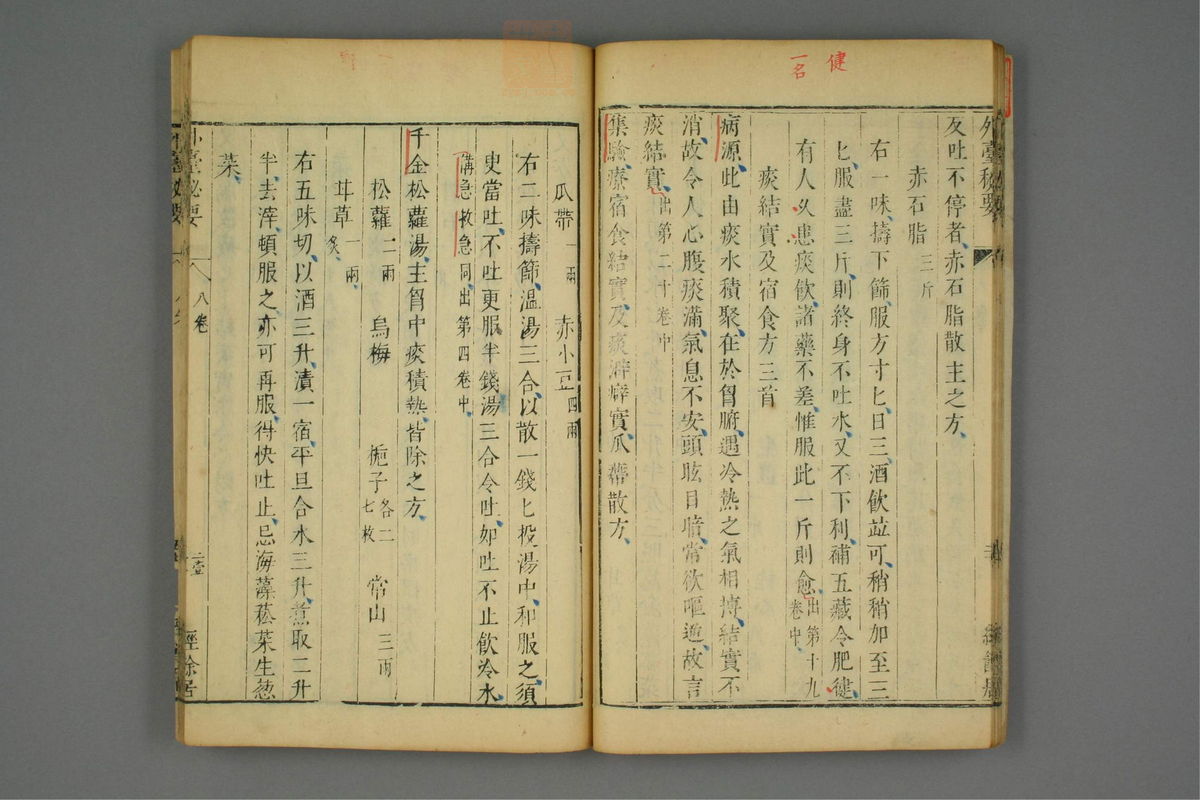 健
一名
外臺秘要
及吐不停者赤石脂散主之方
赤石脂三斤
右一味擣下篩服方寸匕日三酒飲並可稍稍加至三
匕服盡三斤則終身不吐水又不下利補五藏令肥健
有人久患痰飲諸藥不差惟服此一斤則愈出第十九卷中
痰結實及宿食方三首
病源此由痰水積聚在於胷腑遇冷熱之氣相搏結實不
消故令人心腹痰滿氣息不安頭眩目暗常欲嘔逆故言
痰結實出第二十卷中
集驗療宿食結實及痰澼癖實瓜蔕散方
瓜蔕一兩 赤小豆四兩
右二味擣篩温湯三合以散一錢匕投湯中和服之須
臾當吐不吐更服半錢湯三合令吐如吐不止飲冷水
備急救急同出第四卷中
千金松蘿湯主胷中痰積熱皆除之方
松蘿二兩 烏梅 梔子各二七枚 常山三兩
甘草一兩炙
右五味切以酒三升漬一宿平旦合水三升煮取二升
半去滓頓服之亦可再服得快吐止忌海藻菘菜生葱
菜
外臺秘要
八卷
二壹
經餘居